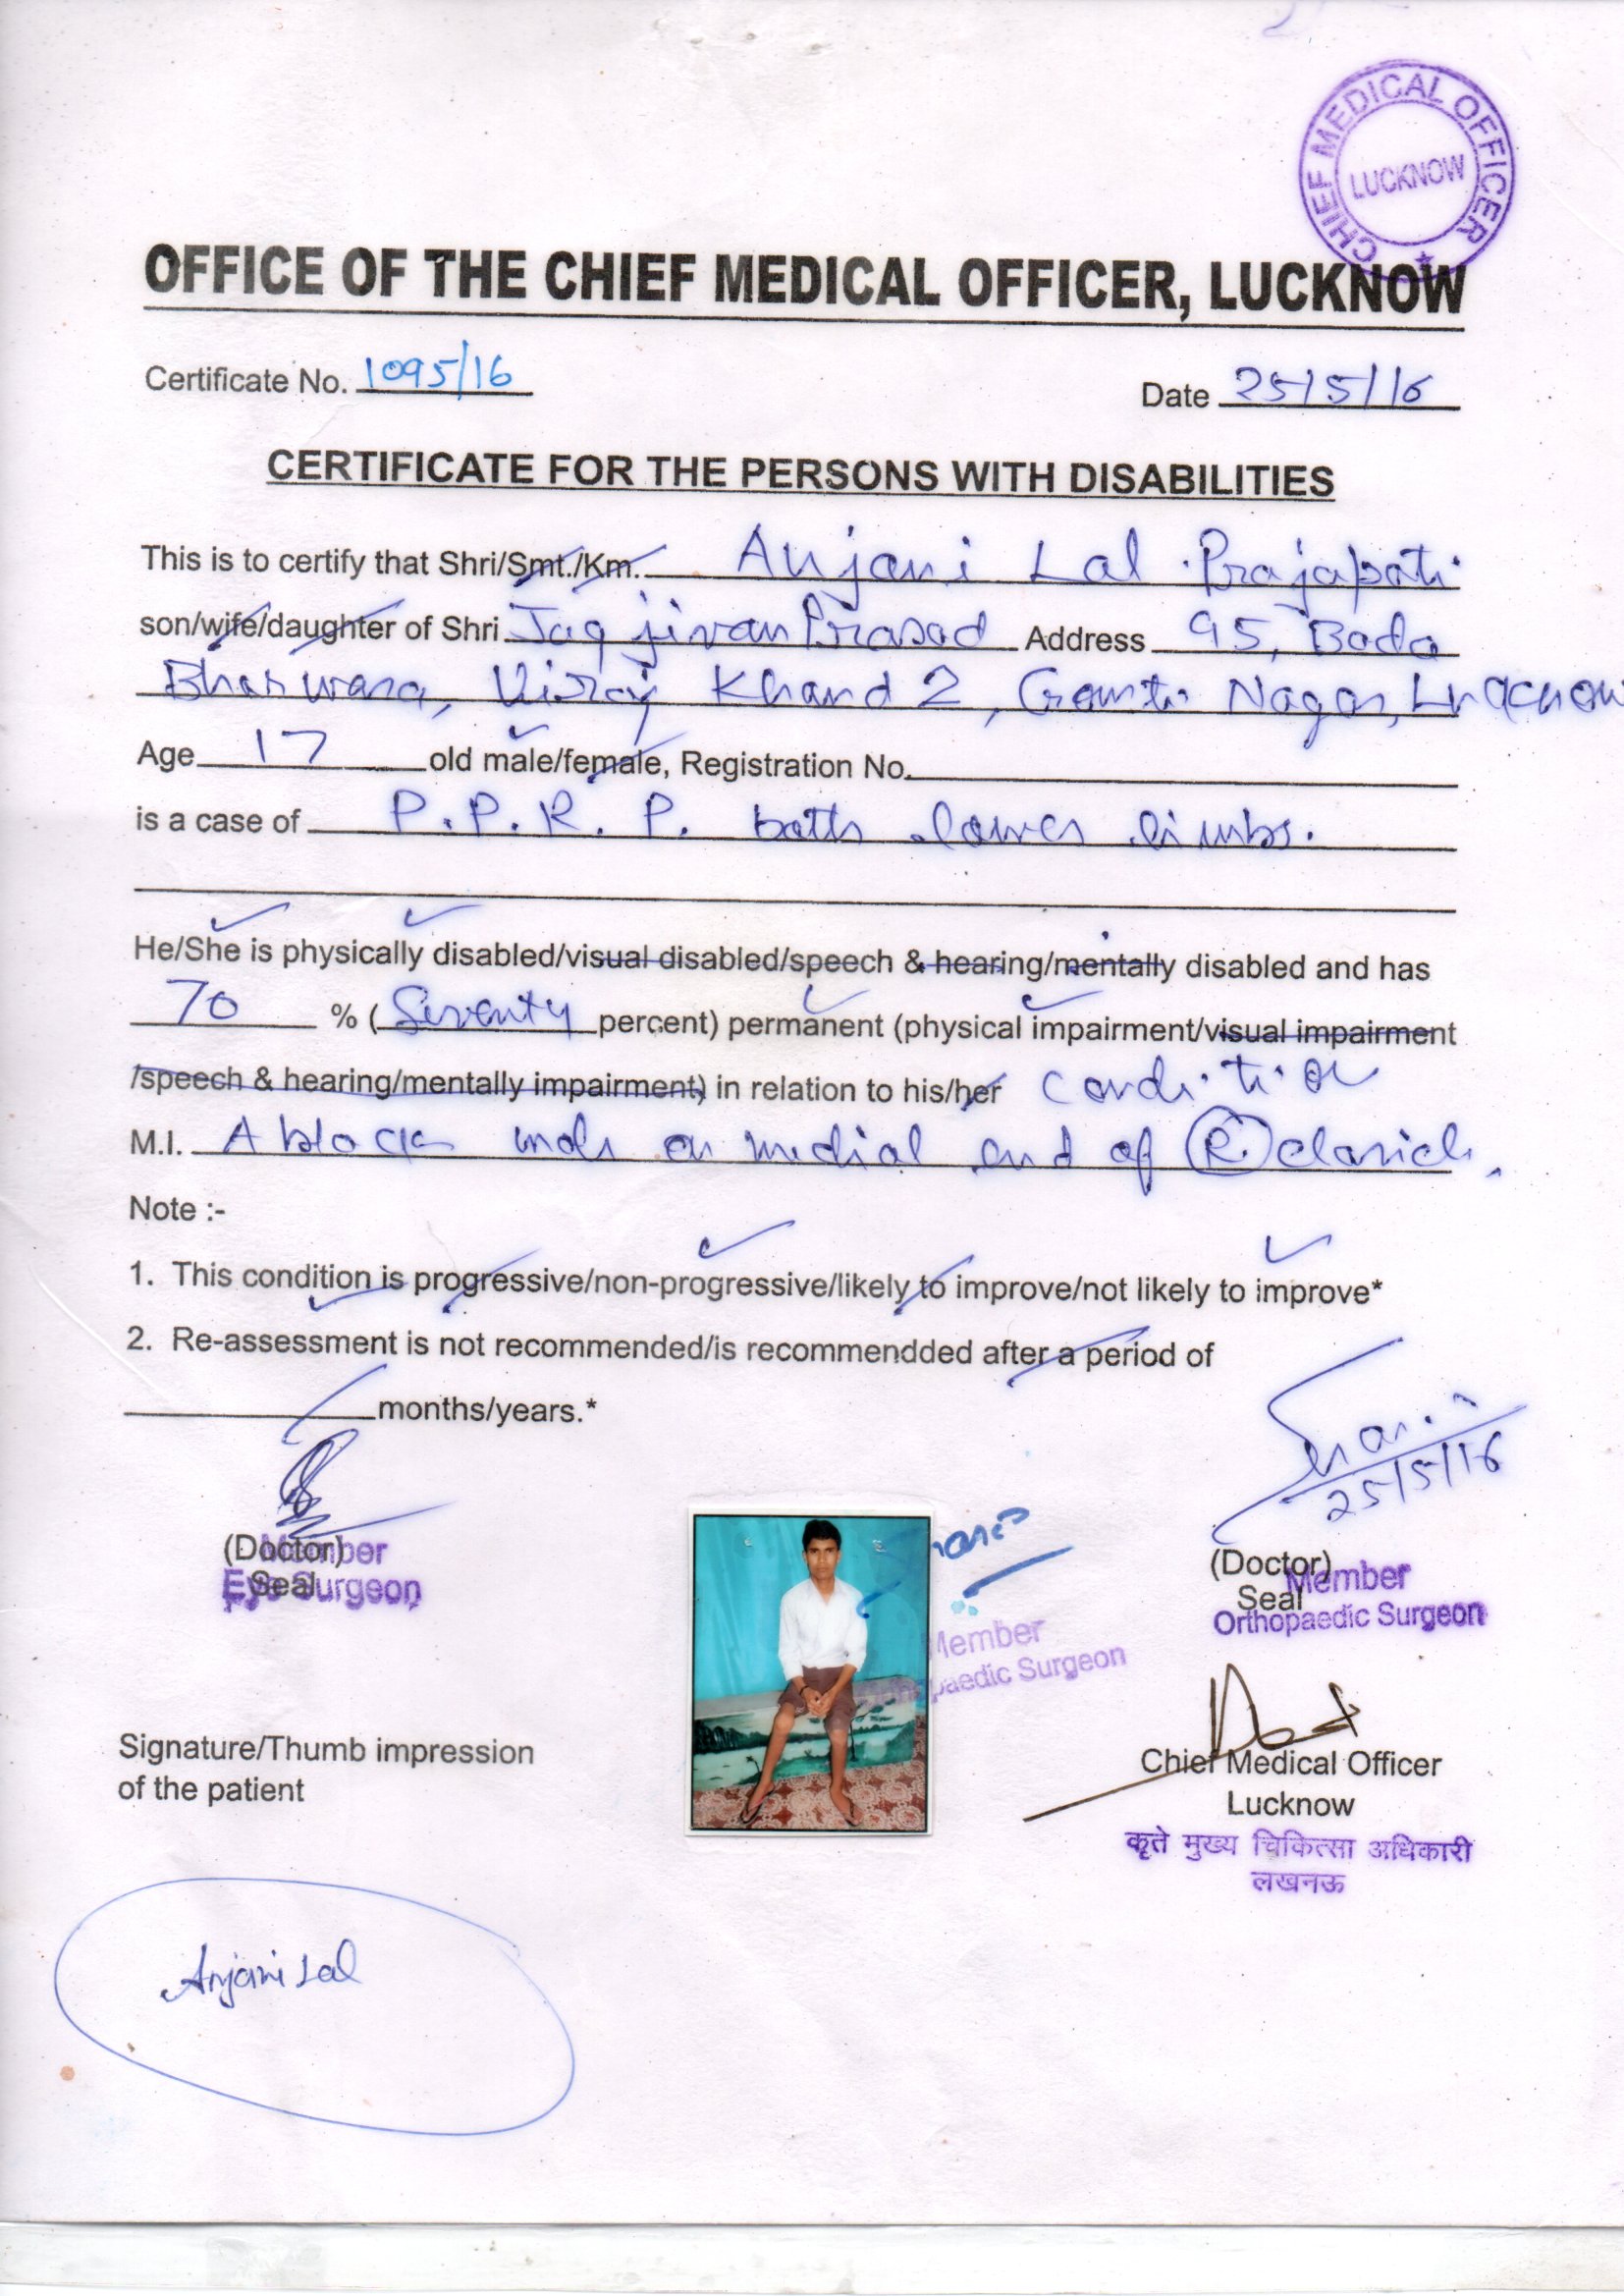 CHIEF MEDICAL OFFICER
LUCKNOW
OFFICE OF THE CHIEF MEDICAL OFFICER, LUCKNOW
Certificate No. 1095/16
Date 25/5/16
CERTIFICATE FOR THE PERSONS WITH DISABILITIES
This is to certify that Shri/Smt./Km. Anjani Lal Prajapati
son/wife/daughter of Shri Jag jivan Prasad Address 95, Bada
Bharwara, Viraj Khand 2, Gomti Nagar, Lucknow
Age 17 old male/female, Registration No.
is a case of P.P.R.P. both lower limbs.
He/She is physically disabled/visual disabled/speech & hearing/mentally disabled and has
70 % (Seventy percent) permanent (physical impairment/visual impairment
/speech & hearing/mentally impairment) in relation to his/her condition
M.I. A black mole on medial end of R clavicle.
Note :-
1. This condition is progressive/non-progressive/likely to improve/not likely to improve*
2. Re-assessment is not recommended/is recommendded after a period of
months/years.*
25/5/16
(Doctor)
Seal
Member
Eye Surgeon
Member
paedic Surgeon
(Doctor)
Seal
Member
Orthopaedic Surgeon
Signature/Thumb impression
of the patient
Chief Medical Officer
Lucknow
कृते मुख्य चिकित्सा अधिकारी
लखनऊ
Anjani Lal